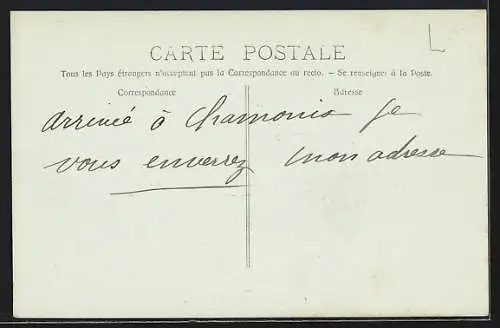 L
CARTE POSTALE
Tous les Pays étrangers n'acceptent pas la Correspondance au recto. - Se renseigner à la Poste.
Correspondance
Adresse
arrivée à Chamonix je
vous enverrez mon adresse